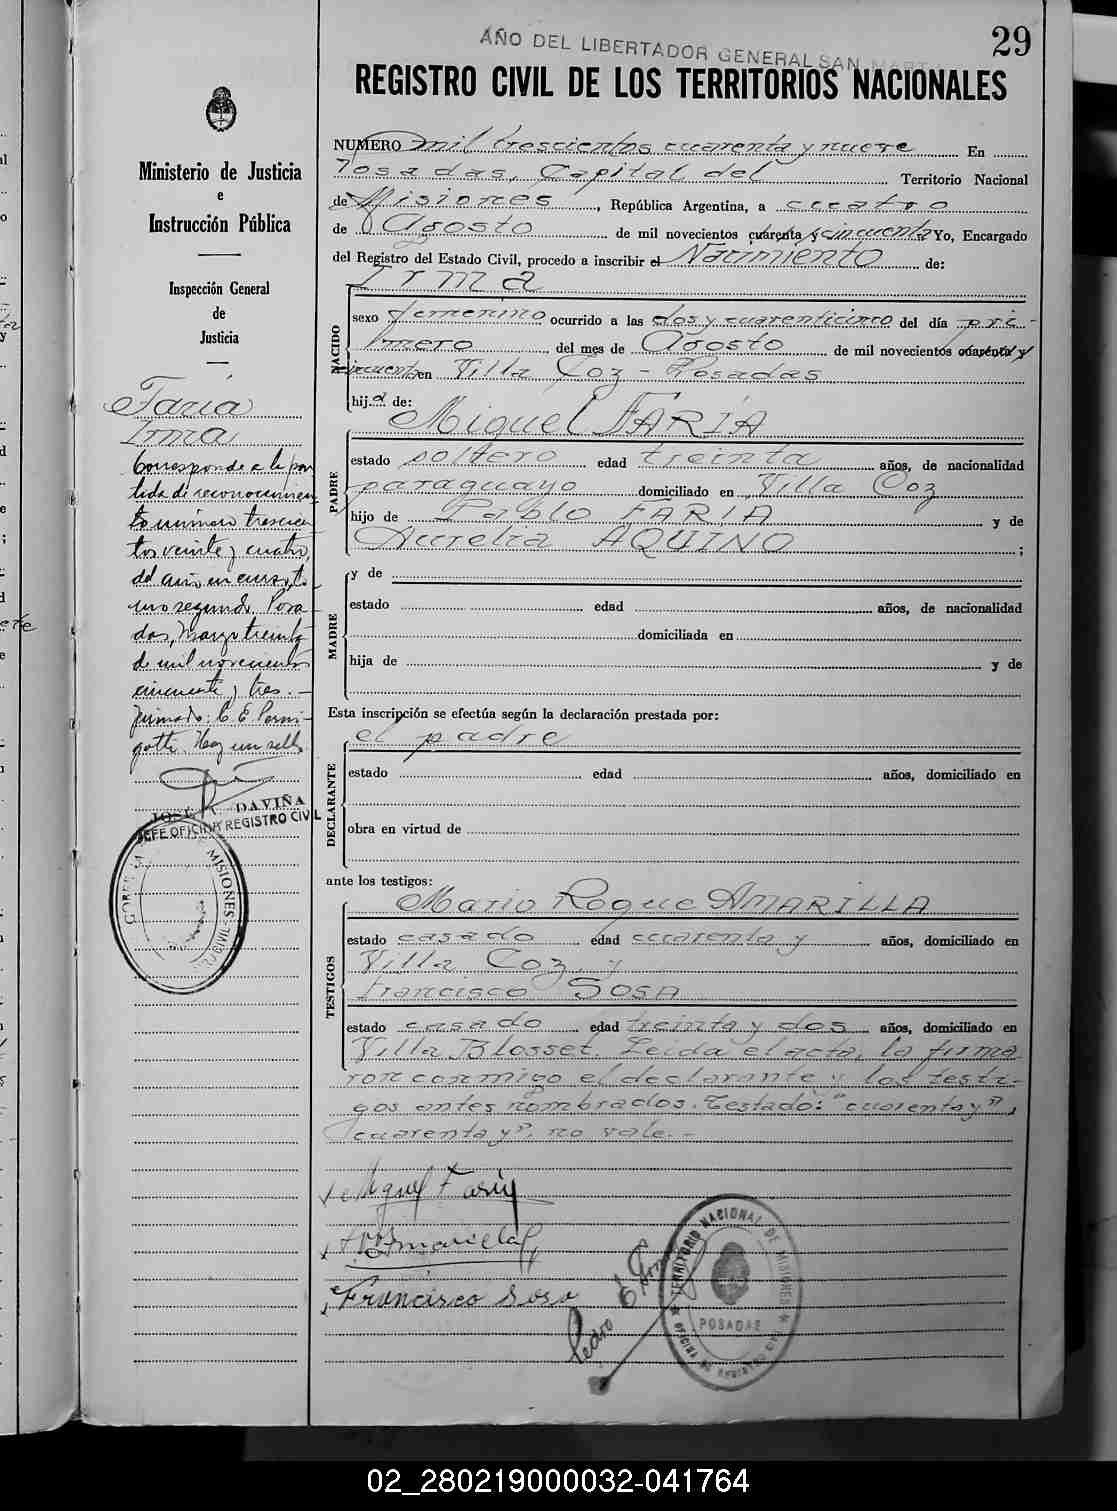 29
AÑO DEL LIBERTADOR GENERAL SAN MARTIN
REGISTRO CIVIL DE LOS TERRITORIOS NACIONALES
Ministerio de Justicia
e
Instrucción Pública
Inspección General
de
Justicia
Faria
Irma
Corresponde a la par
tida de reconocimien
to número trescien
tos veinte y cuatro,
del año en curso, to
mo segundo. Posa
das, Marzo treinta
de mil novecientos
cincuenta y tres.-
Firmado: P. E. Perni-
gotti. Hay un sello.
JOSÉ R. DAVIÑA
JEFE OFICINA REGISTRO CIVIL
MISIONES
NUMERO mil trescientos cuarenta y nueve En
Posadas, Capital del Territorio Nacional
de Misiones, República Argentina, a cuatro
de Agosto de mil novecientos cuarenta y cincuenta Yo, Encargado
del Registro del Estado Civil, procedo a inscribir el Nacimiento de:
NACIDO
Irma
sexo femenino ocurrido a las dos y cuarenticinco del día pri-
mero del mes de Agosto de mil novecientos cuarenta y
cincuenta en Villa Coz - Posadas
hija de:
PADRE
Miguel FARIA
estado soltero edad treinta años, de nacionalidad
paraguayo domiciliado en Villa Coz
hijo de Pablo FARIA y de
Aurelia AQUINO ;
MADRE
y de
estado edad años, de nacionalidad
domiciliada en
hija de y de
Esta inscripción se efectúa según la declaración prestada por:
DECLARANTE
el padre
estado edad años, domiciliado en
obra en virtud de
ante los testigos:
TESTIGOS
Mario Roque AMARILLA
estado casado edad cuarenta y años, domiciliado en
Villa Coz, y
Francisco SOSA
estado casado edad treinta y dos años, domiciliado en
Villa Blosset. Leida el acta, la firma
ron conmigo el declarante y los testi-
gos antes nombrados. Testado: "cuarenta y",
"cuarenta y", no vale.-
Miguel Faria
Francisco Sosa
Pedro E.
TERRITORIO NACIONAL DE MISIONES
POSADAS
OFICINA DE REGISTRO CIVIL
02_280219000032-041764